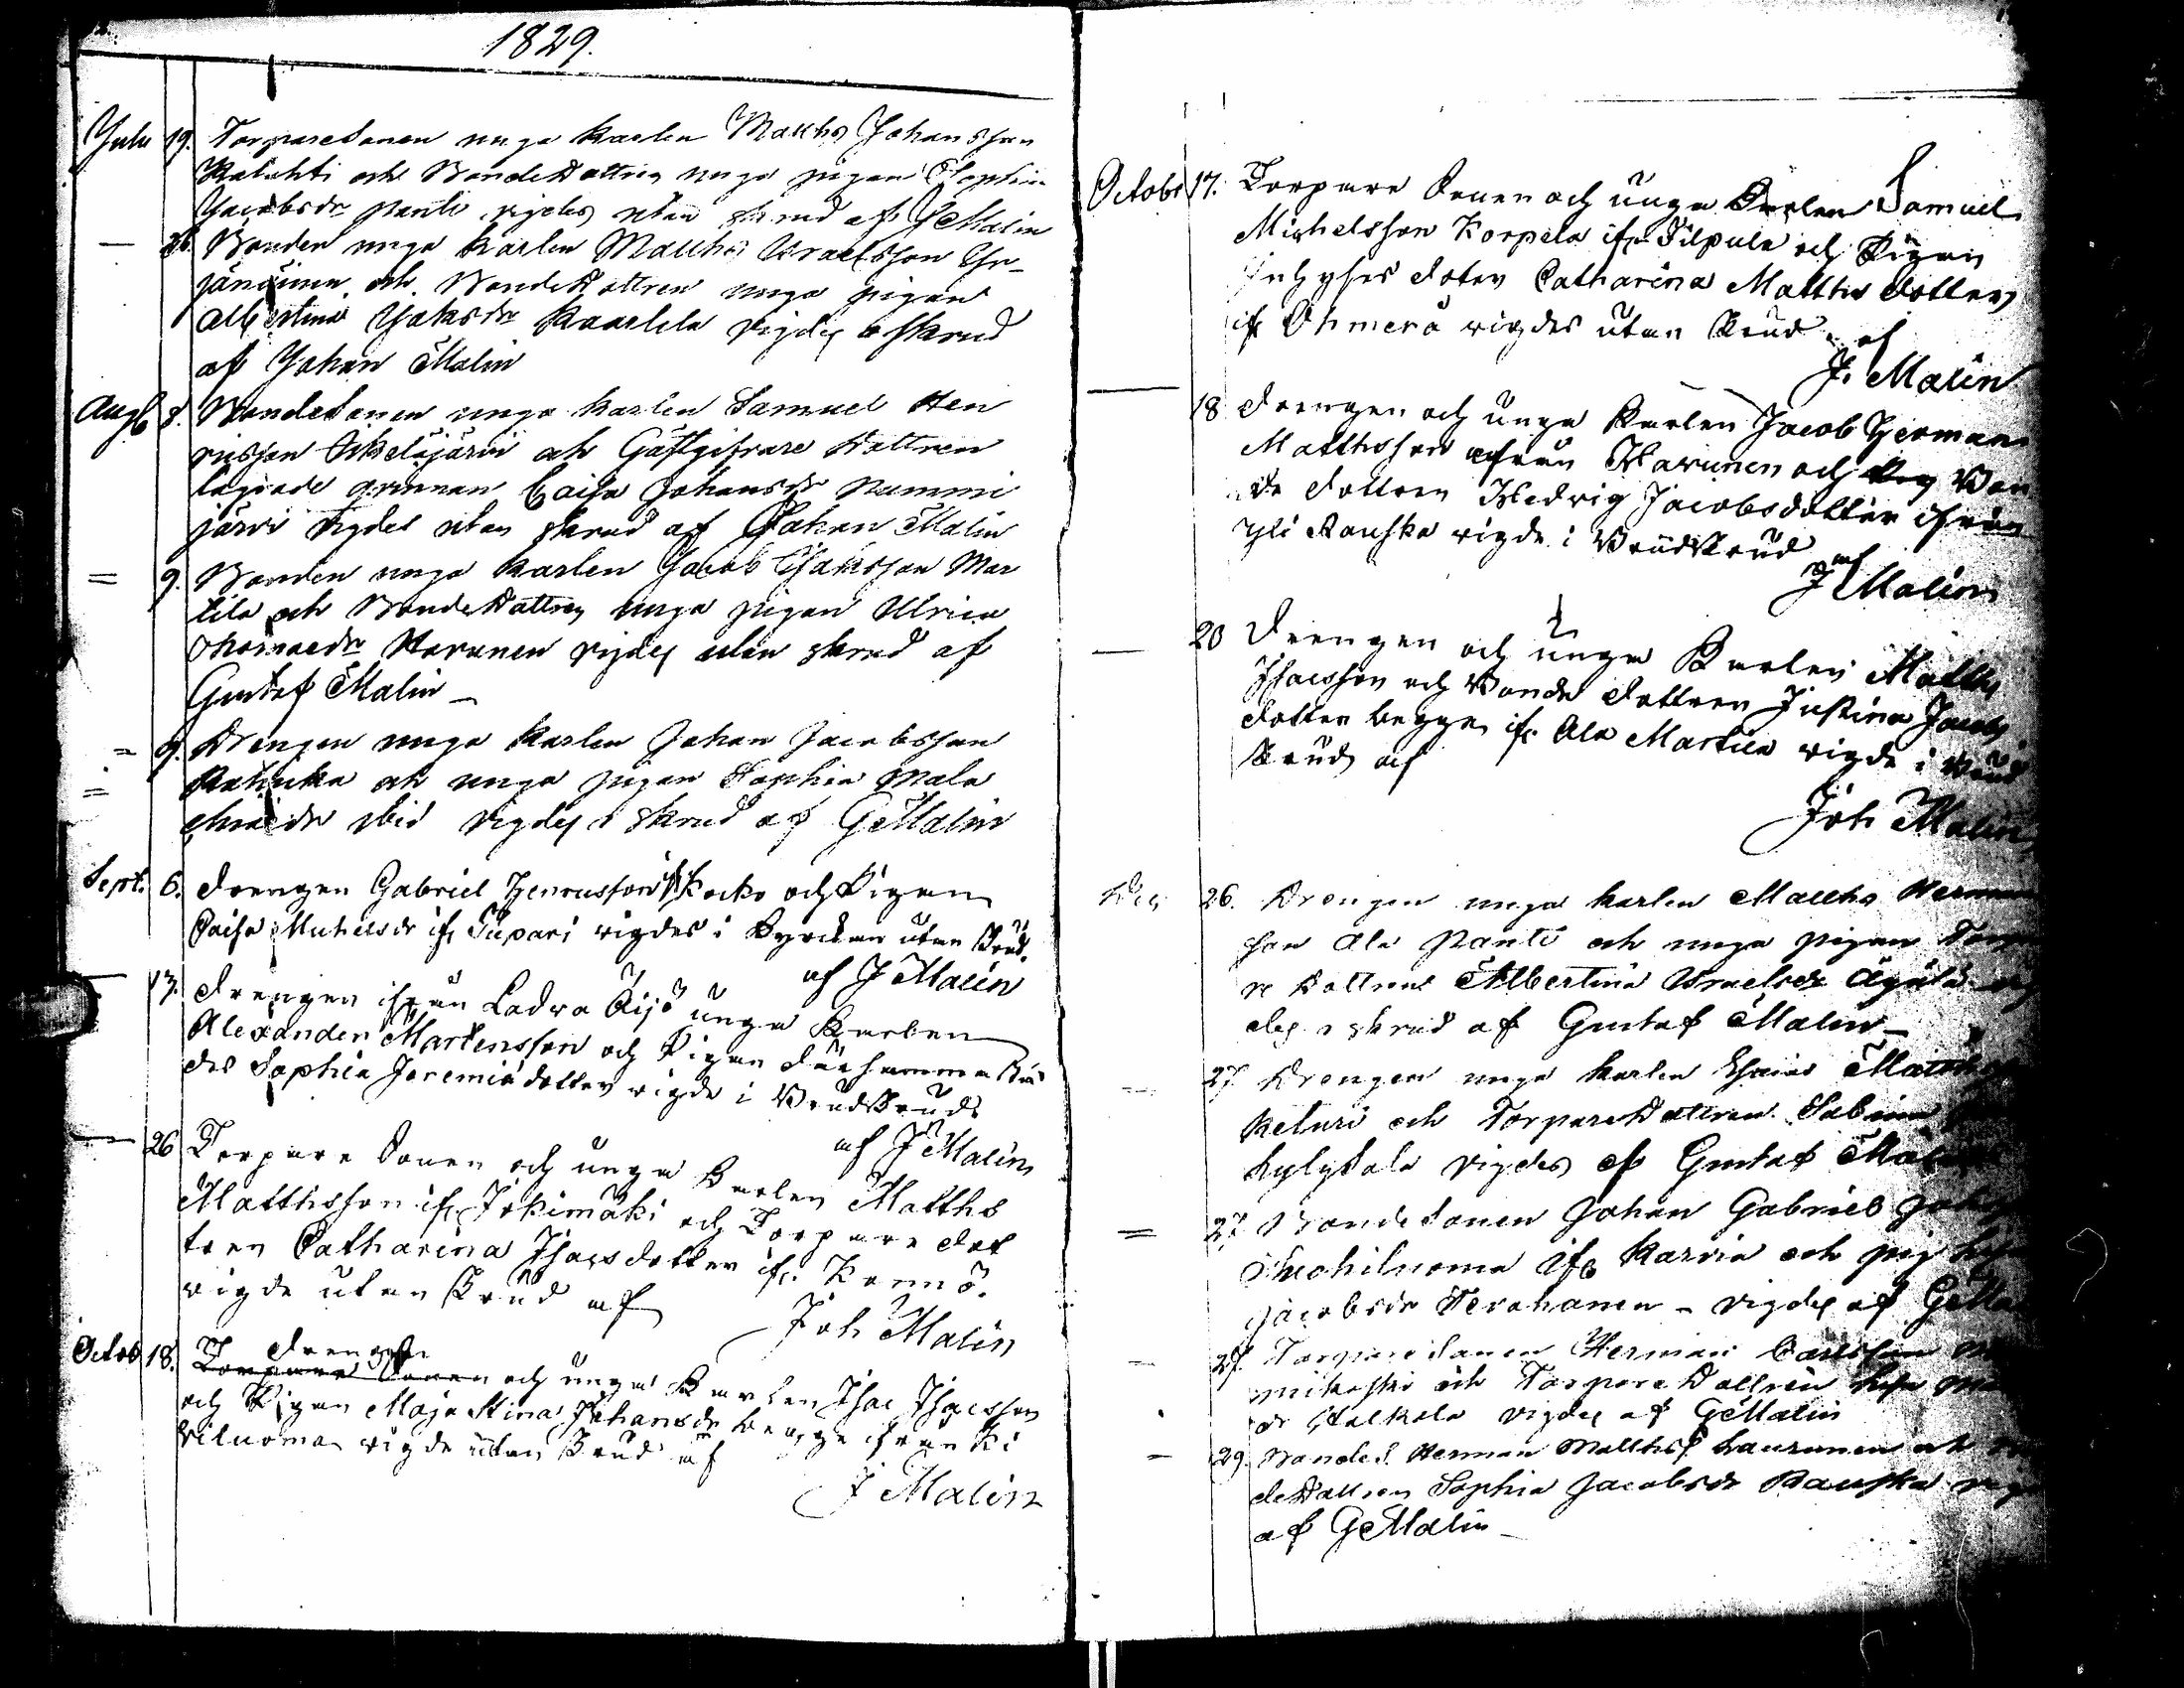 1829.
Julii 19. Torparesonen unga karlen Matths Johansson
Kaluhti och Bondedottren unga pigan Sophia
Jacobsdr Panti vigdes utan skrud af J Malin
— 26. Bonden unga karlen Matths Israelsson
och Bondedottren unga pigan
Albertina Isaksdr Kaarlela vigdes i skrud
af Johan Malin
Aug. 8. Bondesonen unga karlen Samuel Hen
ricsson och Gästgifvare dottren
lägrade qvinnan Caisa Johansdr Nummi
järvi vigdes utan skrud af Johan Malin
= 9. Bonden unga karlen Jacob Isaksson Mar
tila och Bondedottren unga pigan Ulrica
Thomasdr Havunen vigdes utan skrud af
Gustaf Malin —
= 9. Drengen unga karlen Johan Jacobsson
och unga pigan Sophia Mala
chiaedr ibid vigdes i skrud af G Malin
Sept. 6. Drengen Gabriel Henricsson Kocko och Pigan
Caisa Michelsdr ifr Tupari vigdes i Kyrckan utan Skrud
af J Malin
— 13. Drengen ifrån Ladva Äijö unga Karlen
Alexander Mårtensson och Pigan därsammastä
des Sophia Jeremiædotter vigde i Brudskrud
af J Malin
— 26 Torpare Sonen och unga Karlen Matths
Matthsson ifr Jokimäki och Torpare dot
tren Catharina Isacsdotter ifr
vigde utan Skrud af
Joh Malin
Octob 18. Drengen
Torpare Sonen och unga Karlen Isac Isacsson
och Pigan Maja Stina Johansdr begge ifrån Ki
viluoma vigde utan Skrud af
J Malin
Octobr 17. Torpare Sonen och unga Karlen Samuel
Michelsson Korpela ifr Filpula och Pigan
Inhyses doter Catharina Matths dotter
ifr Öhmerä vigdes utan Skrud af
J. Malin
— 18 Drengen och unga Karlen Jacob Herman
Matthsson ifrån Havunen och Bon
de dottren Hedvig Jacobsdotter ifrån
Yli Rauska vigde i Brudskrud af
J Malin
— 20 Drengen och unga Karlen Matths
Isacsson och Bonde dottren Justina Jacobs
dotter begge ifr Ala Martila vigde i Brud
skrud af
Joh Malin
26. Drengen unga karlen Matths Herman
son Ala Panti och unga pigan Torpa
re dottren Albertina Israelsdr vig
des i skrud af Gustaf Malin —
— 27 Drengen unga karlen Esaias Matths
Keturi och Torparedottren Sabina
Kylysalo vigdes af Gustaf Malin
= 27. Bondesonen Johan Gabriel Joh
ifr Karvia och pig
Jacobsdr — vigdes af G Ma
— 27. Torpare sonen Herman Carlsson
och Torpare Dottren
dr vigdes af G Malin
— 29. Bondes. Herman Matthss. Laurunen och
dedottren Sophia Jacobsdr Rauska vig
af G Malin —